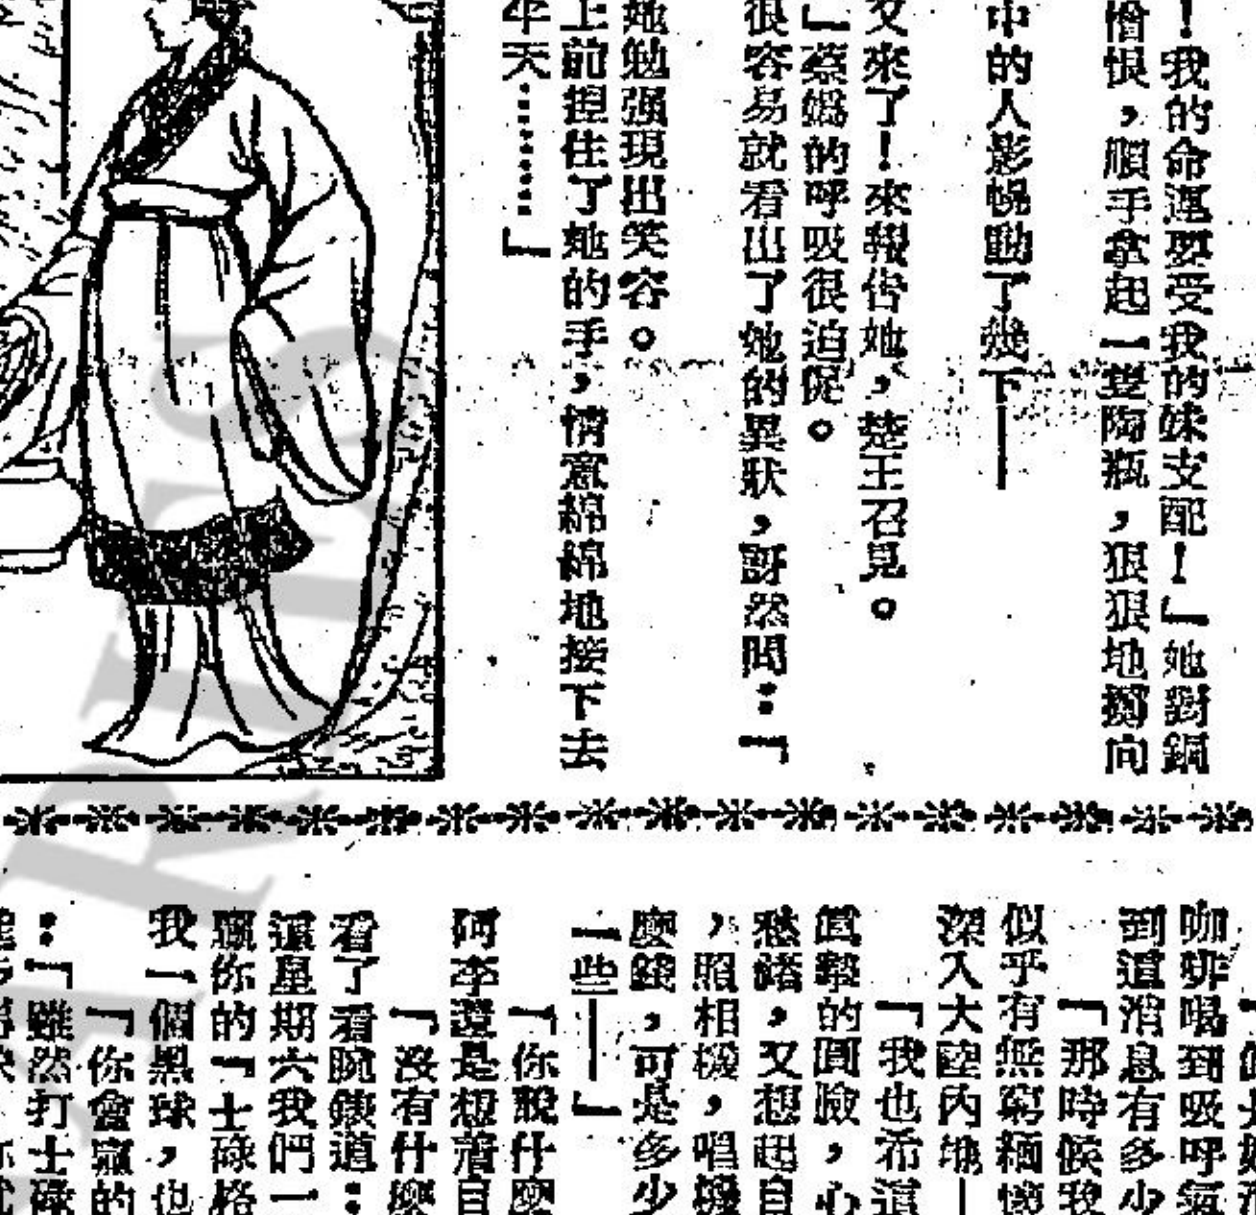 ！我的命運要受我的妹支配！」她對銅
憎恨，順手拿起一隻陶瓶，狠狠地擲向
中的人影幌動了幾下——
又來了！來報告她，楚王召見。
」蔡嫣的呼吸很迫促。
很容易就看出了她的異狀，訝然問：「
她勉强現出笑容。
上前担住了她的手，情意綿綿地接下去
半天………」
咖啡喝到吸呼氣
到這消息有多少
「那時候我
似乎有無窮緬懷
深入大陸內地—
「我也希這
真摯的圓臉，心
愁緒，又想起自
，照相機，唱機
麼錢，可是多少
一些——」
「你說什麼
阿李還是想着自
「沒有什麼
看了看腕錶道：
這星期六我們一
贏你的「士碌格
我一個黑球，也
「你會贏的
：「雖然打士碌